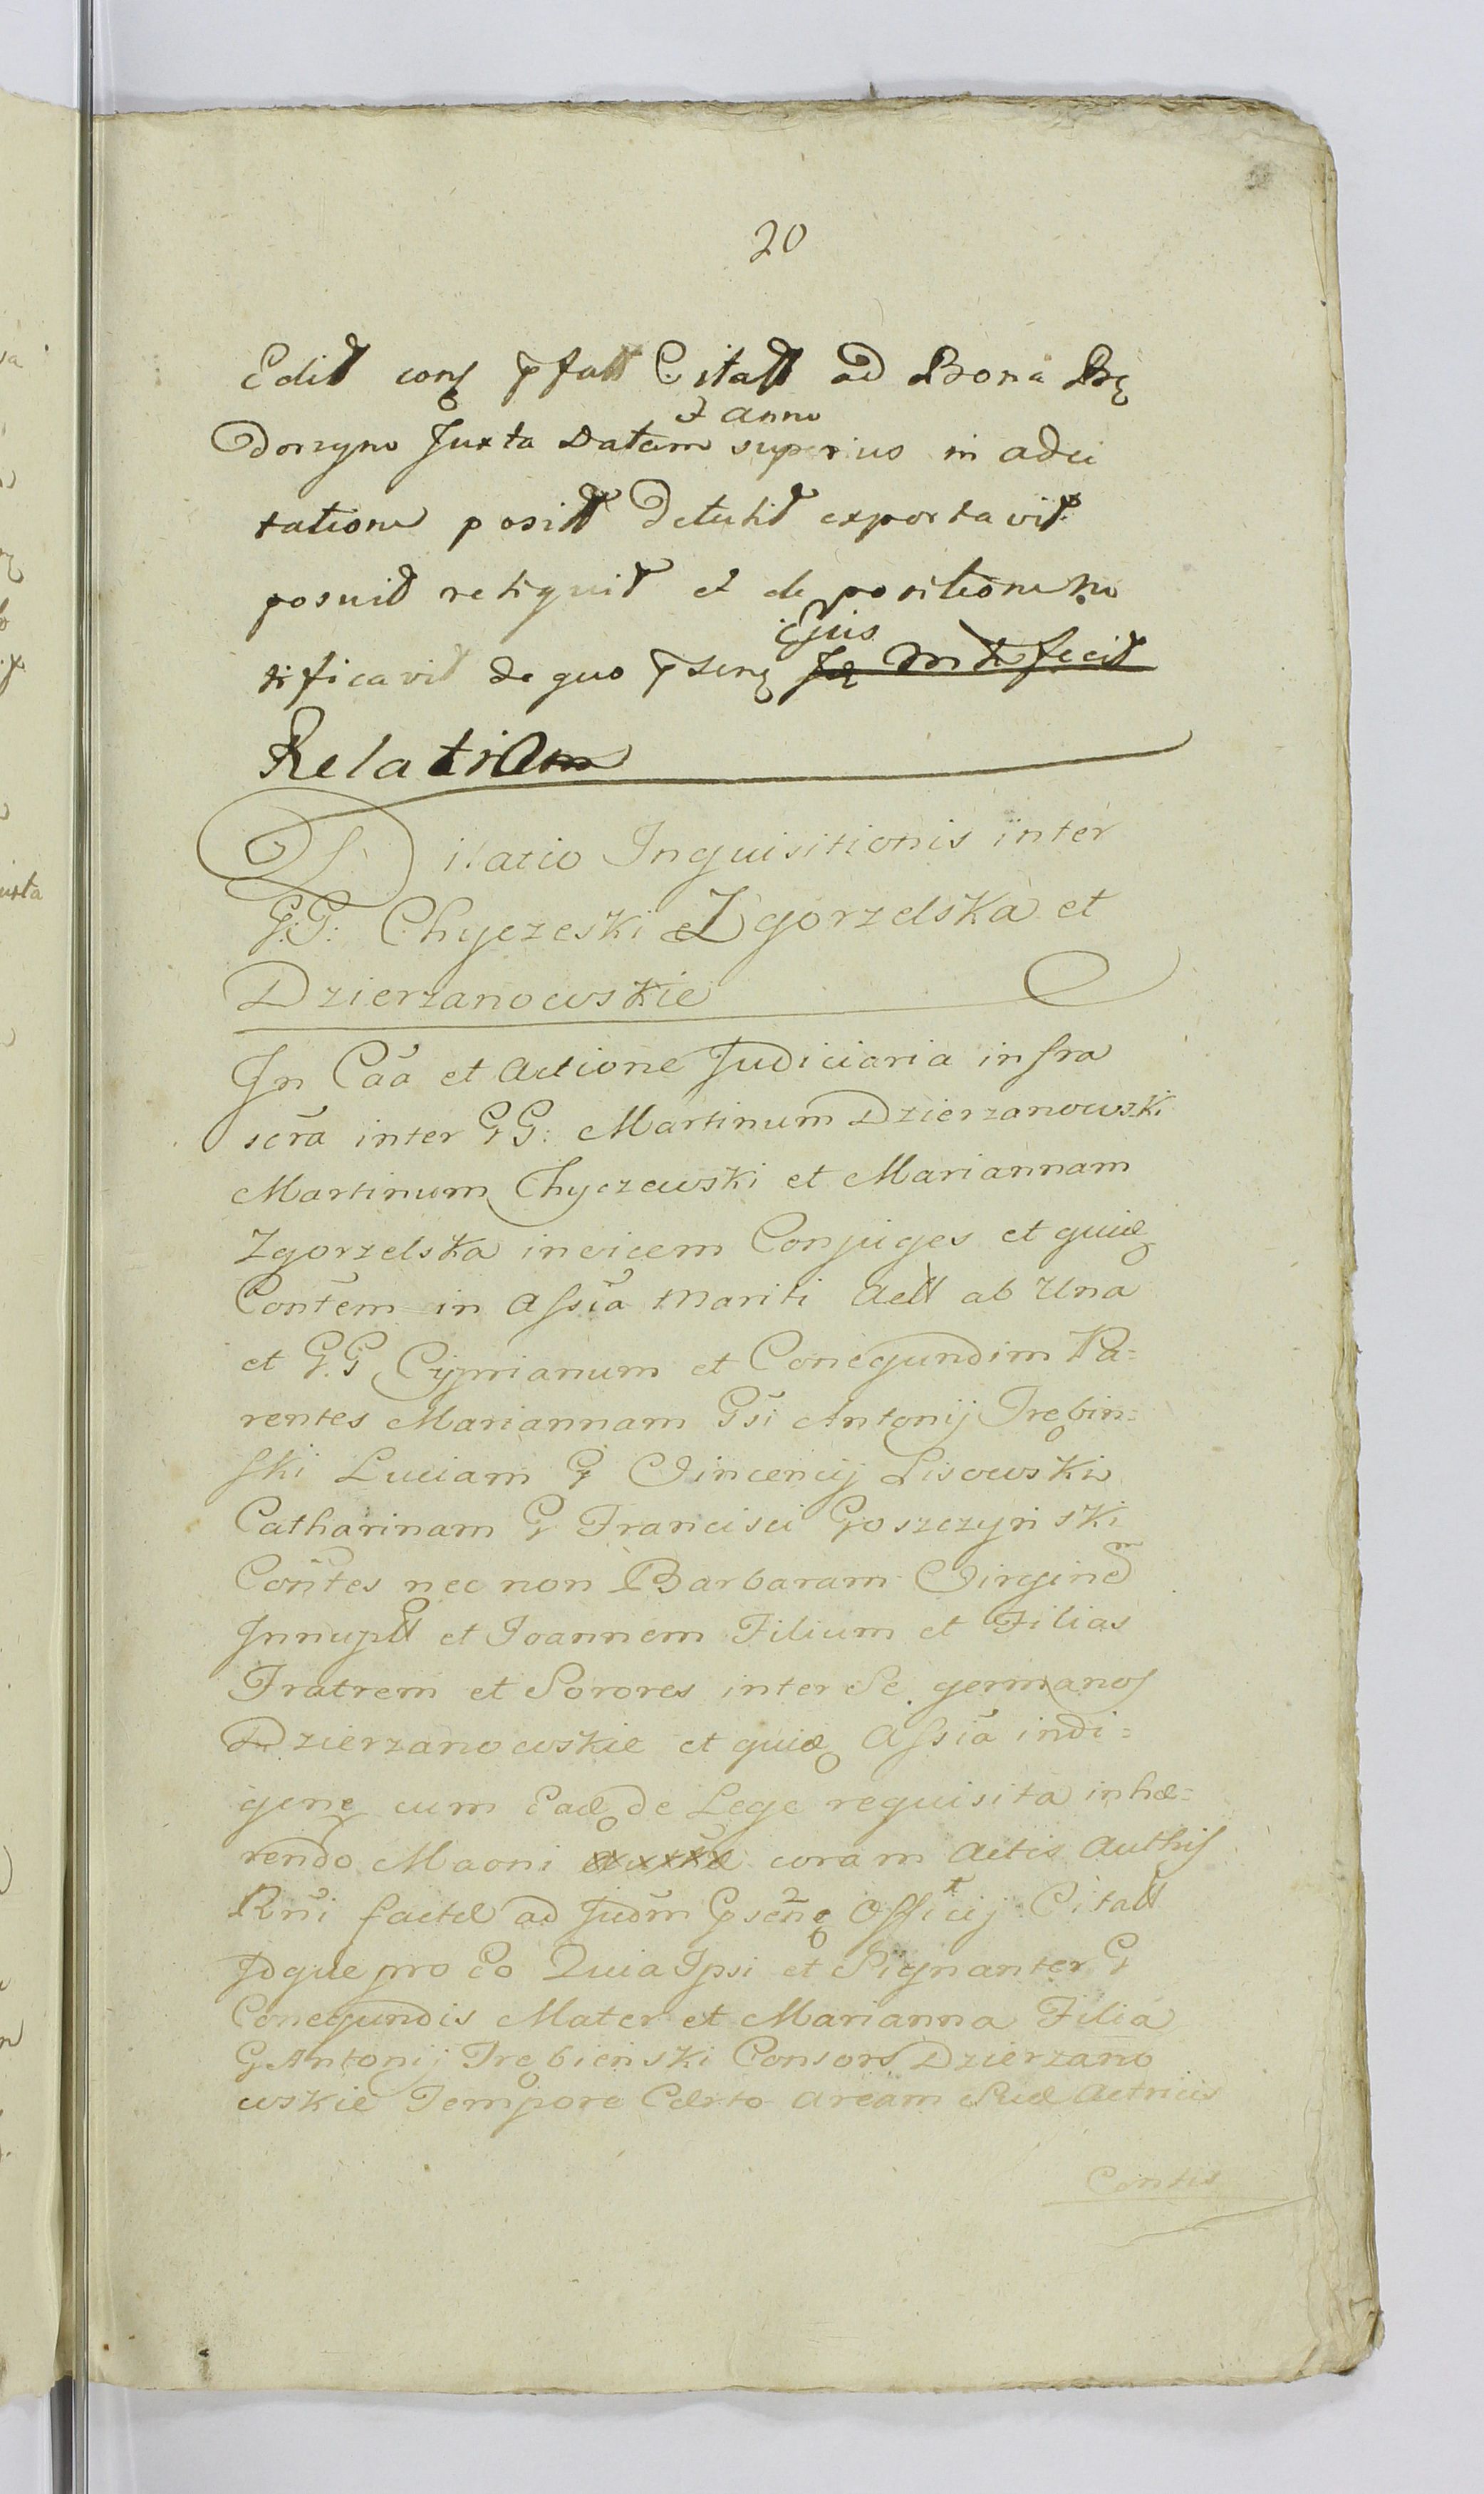 20
Edit conſ pſatt Citatt ad Bona Brę
Dorzyno Juxta Datam superius in adci
et anno
tatione positt Detulit exportavit
posuit reliquit et de positione no
tificavit de quo pſenę
ejus
Relatiom
Dilatio Inquisitionis inter
G:G: Chyczeski Zgorzelska et
Dzierzanowskie
In Cãa et Actione Judiciaria infra
scrã inter GG: Martinum Dzierzanowski
Martinum Chyczewski et Mariannam
Zgorzelska invicem Conjuges et quidę
Contem in Aſsĩa Mariti Actt ab Una
et G.G Cyprianum et Conegundim Pa=
rentes Mariannam Gsi Antonij Trębin=
ſki Luciam G Vincencij Lisowski
Catharinam G Francisci Goszczynski
Contes nec non Barbaram Virginem
Innuptt et Joannem Filium et Filias
Fratrem et Sorores inter Se germanoſ
Dzierzanowskie et quidę Aſsĩa indi=
genę cum Eadę de Lege requisita inhæ=
rendo Maoni coram Actis Authiſ
Rñi factæ ad Judm Pſenę Officij Citatt
Idque pro Eo Quia Ipsi et Signanter G
Conegundis Mater et Marianna Filia
G Antonij Trębienski Consors Dzierzano
wskie Tempore Certo aream Suæ Actricis
Contis